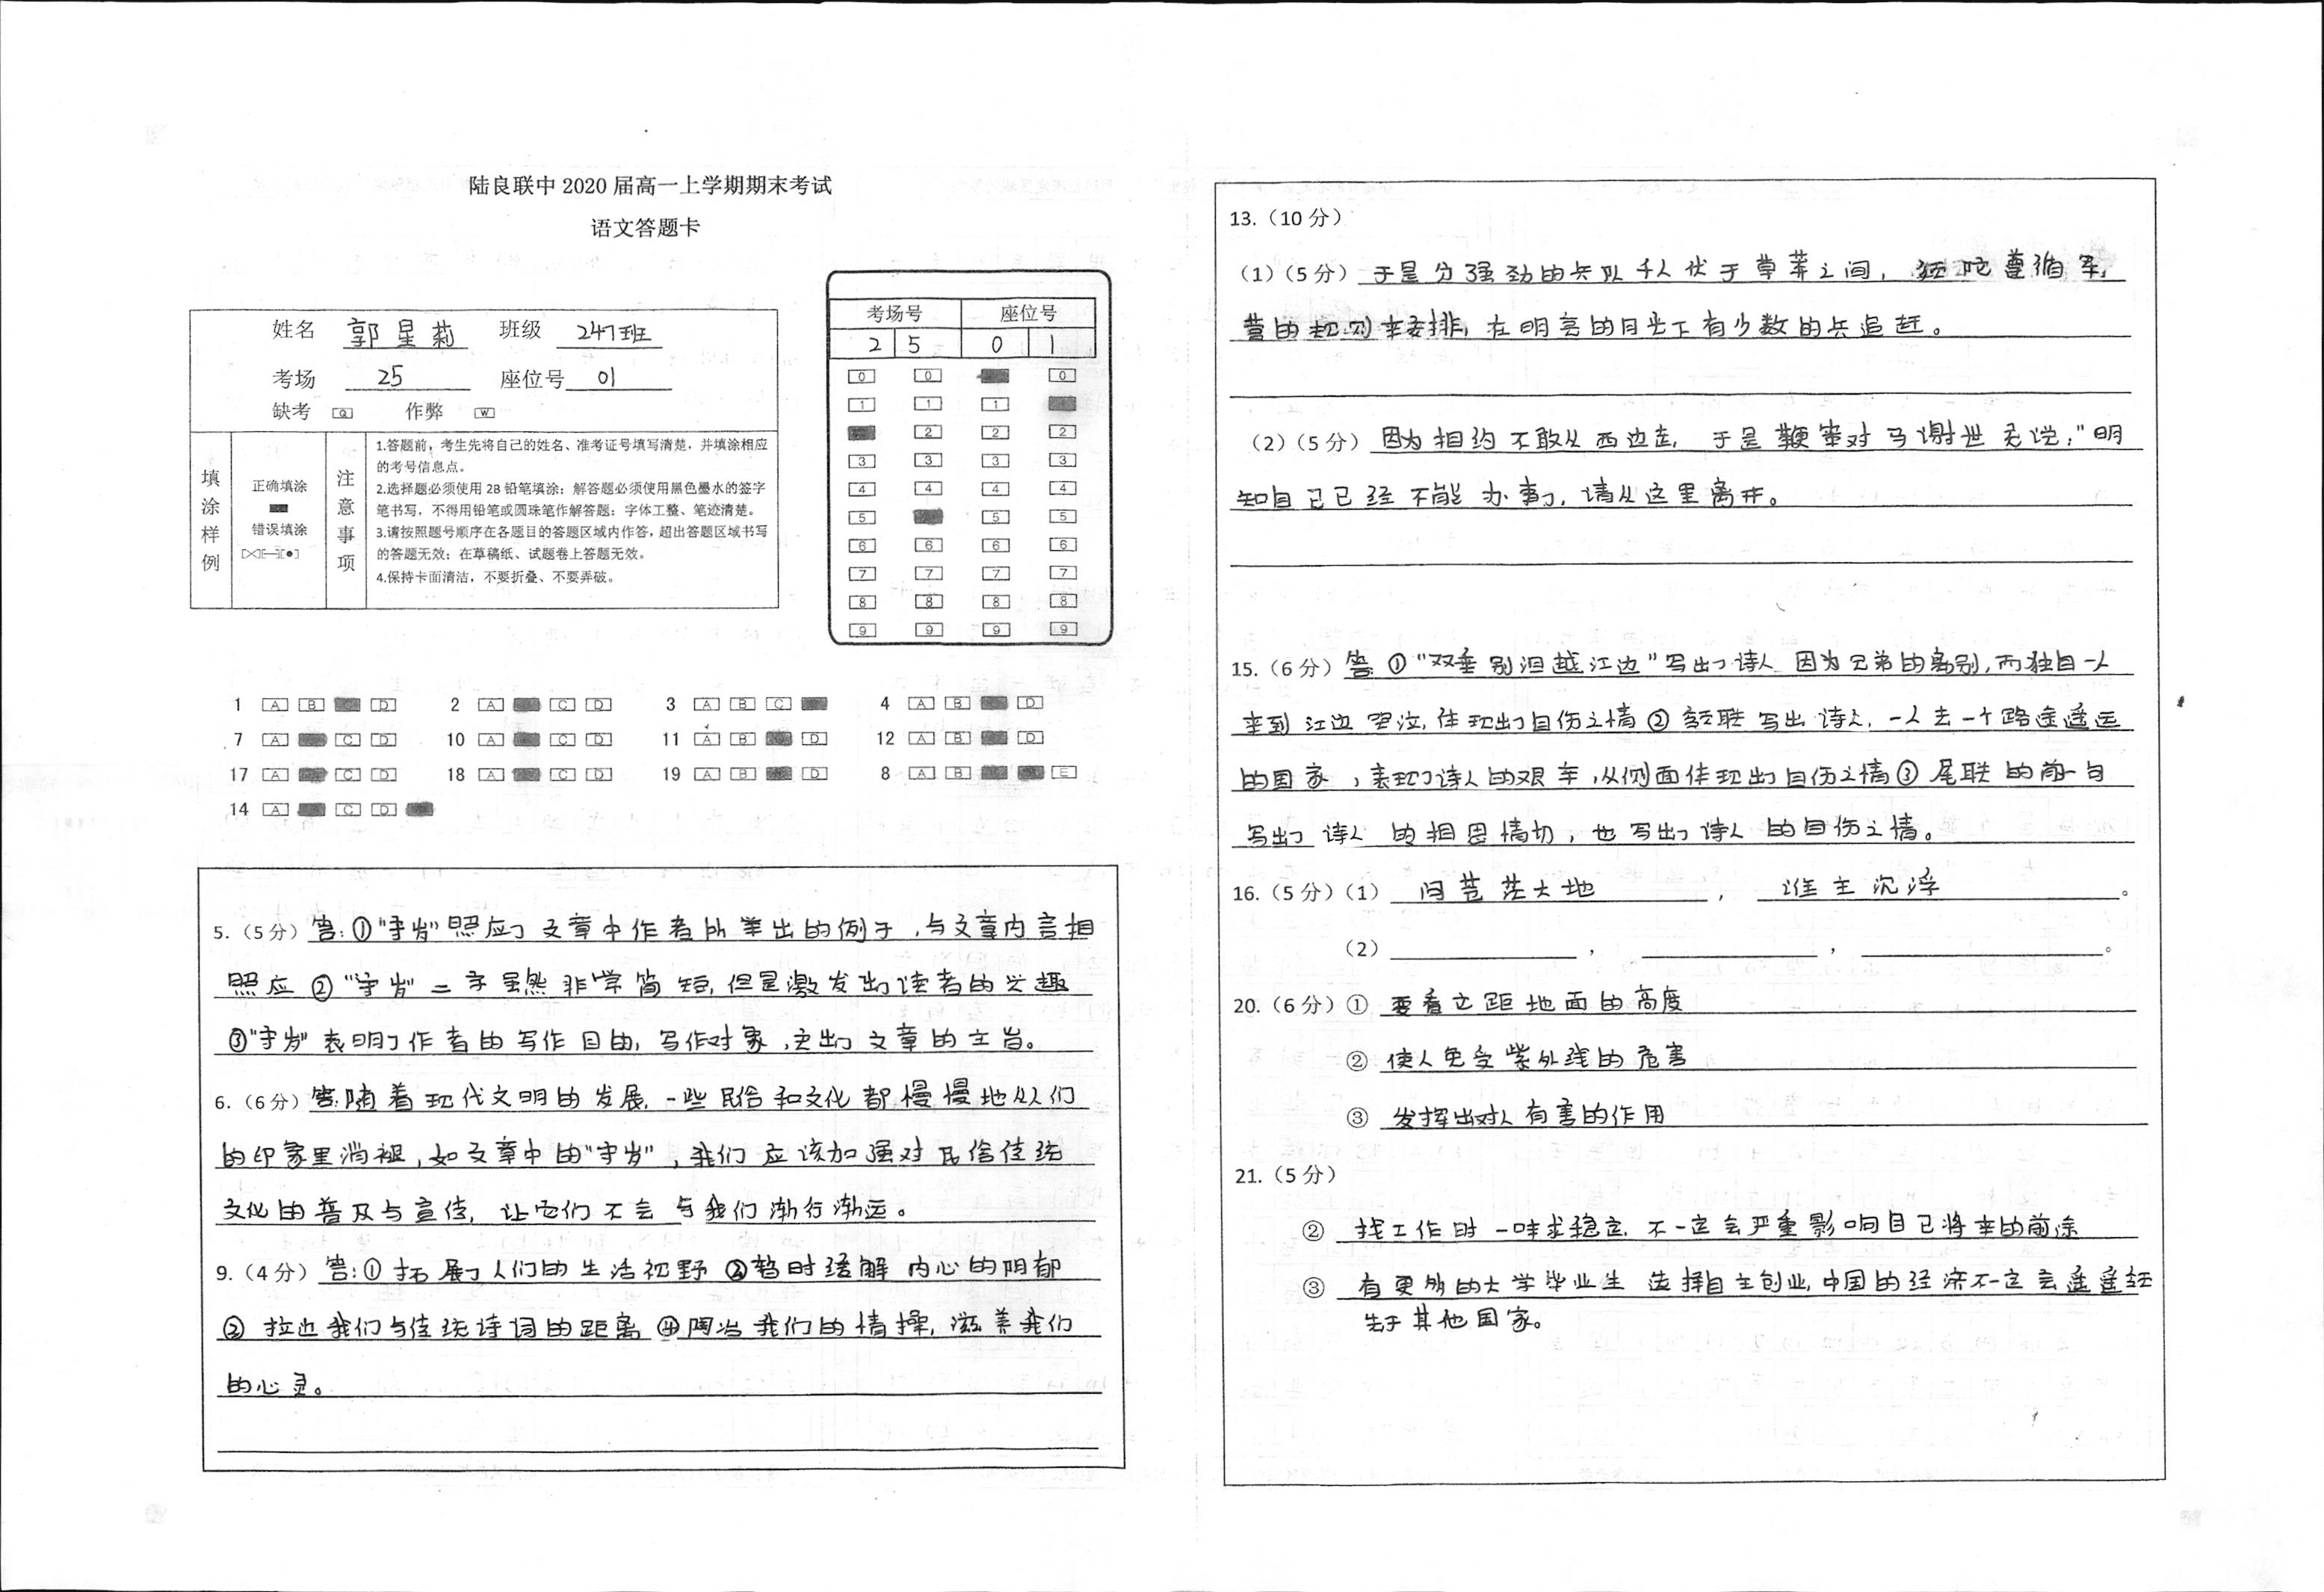 陆良联中 2020 届高一上学期期末考试
语文答题卡
姓名 郭星莉 班级 247班
考场 25 座位号 01
缺考 [Q] 作弊 [W]
填涂样例
正确填涂
错误填涂
注意事项
1.答题前，考生先将自己的姓名、准考证号填写清楚，并填涂相应
的考号信息点。
2.选择题必须使用 2B 铅笔填涂；解答题必须使用黑色墨水的签字
笔书写，不得用铅笔或圆珠笔作解答题；字体工整、笔迹清楚。
3.请按照题号顺序在各题目的答题区域内作答，超出答题区域书写
的答题无效；在草稿纸、试题卷上答题无效。
4.保持卡面清洁，不要折叠、不要弄破。
考场号 座位号
2 5 0 1
[0] [0] [0]
[1] [1] [1]
[2] [2] [2]
[3] [3] [3] [3]
[4] [4] [4] [4]
[5] [5] [5]
[6] [6] [6] [6]
[7] [7] [7] [7]
[8] [8] [8] [8]
[9] [9] [9] [9]
1 [A] [B] [D] 2 [A] [C] [D] 3 [A] [B] [C] 4 [A] [B] [D]
7 [A] [C] [D] 10 [A] [C] [D] 11 [A] [B] [D] 12 [A] [B] [D]
17 [A] [C] [D] 18 [A] [C] [D] 19 [A] [B] [D] 8 [A] [B] [E]
14 [A] [C] [D]
5.（5 分）答:①"守岁"照应了文章中作者所举出的例子,与文章内言相
照应 ②"守岁"二字虽然非常简短,但是激发出了读者的兴趣
③"守岁"表明了作者的写作目的,写作对象,突出了文章的主旨。
6.（6 分）答:随着现代文明的发展,一些民俗和文化都慢慢地从人们
的印象里消褪,如文章中的"守岁",我们应该加强对民俗传统
文化的普及与宣传,让它们不会与我们渐行渐远。
9.（4 分）答:①拓展了人们的生活视野 ②暂时缓解内心的阴郁
③拉近我们与传统诗词的距离 ④陶冶我们的情操,滋养我们
的心灵。
13.（10 分）
（1）（5 分）于是分强劲的兵队千人伏于草莽之间,
营的 安排,在明亮的月光下有少数的兵追赶。
（2）（5 分）因为相约不敢从西边走,于是 对马谢世 说:"明
知自己已经不能办事了,请从这里离开。
15.（6 分）答 ①"双垂别泪越江边"写出了诗人因为兄弟的离别,而独自一人
来到江边哭泣,体现出了自伤之情 ②颔联写出诗人,一人去一个路途遥远
的国家,表现了诗人的艰辛,从侧面体现出了自伤之情 ③尾联的前一句
写出了诗人的相思情切,也写出了诗人的自伤之情。
16.（5 分）（1）问苍茫大地，谁主沉浮。
（2） ， ， 。
20.（6 分）① 要看它距地面的高度
② 使人免受紫外线的危害
③ 发挥出对人有害的作用
21.（5 分）
② 找工作时一味求稳定,不一定会严重影响自己将来的前途
③ 有更多的大学毕业生选择自主创业,中国的经济不一定会遥遥
先于其他国家。